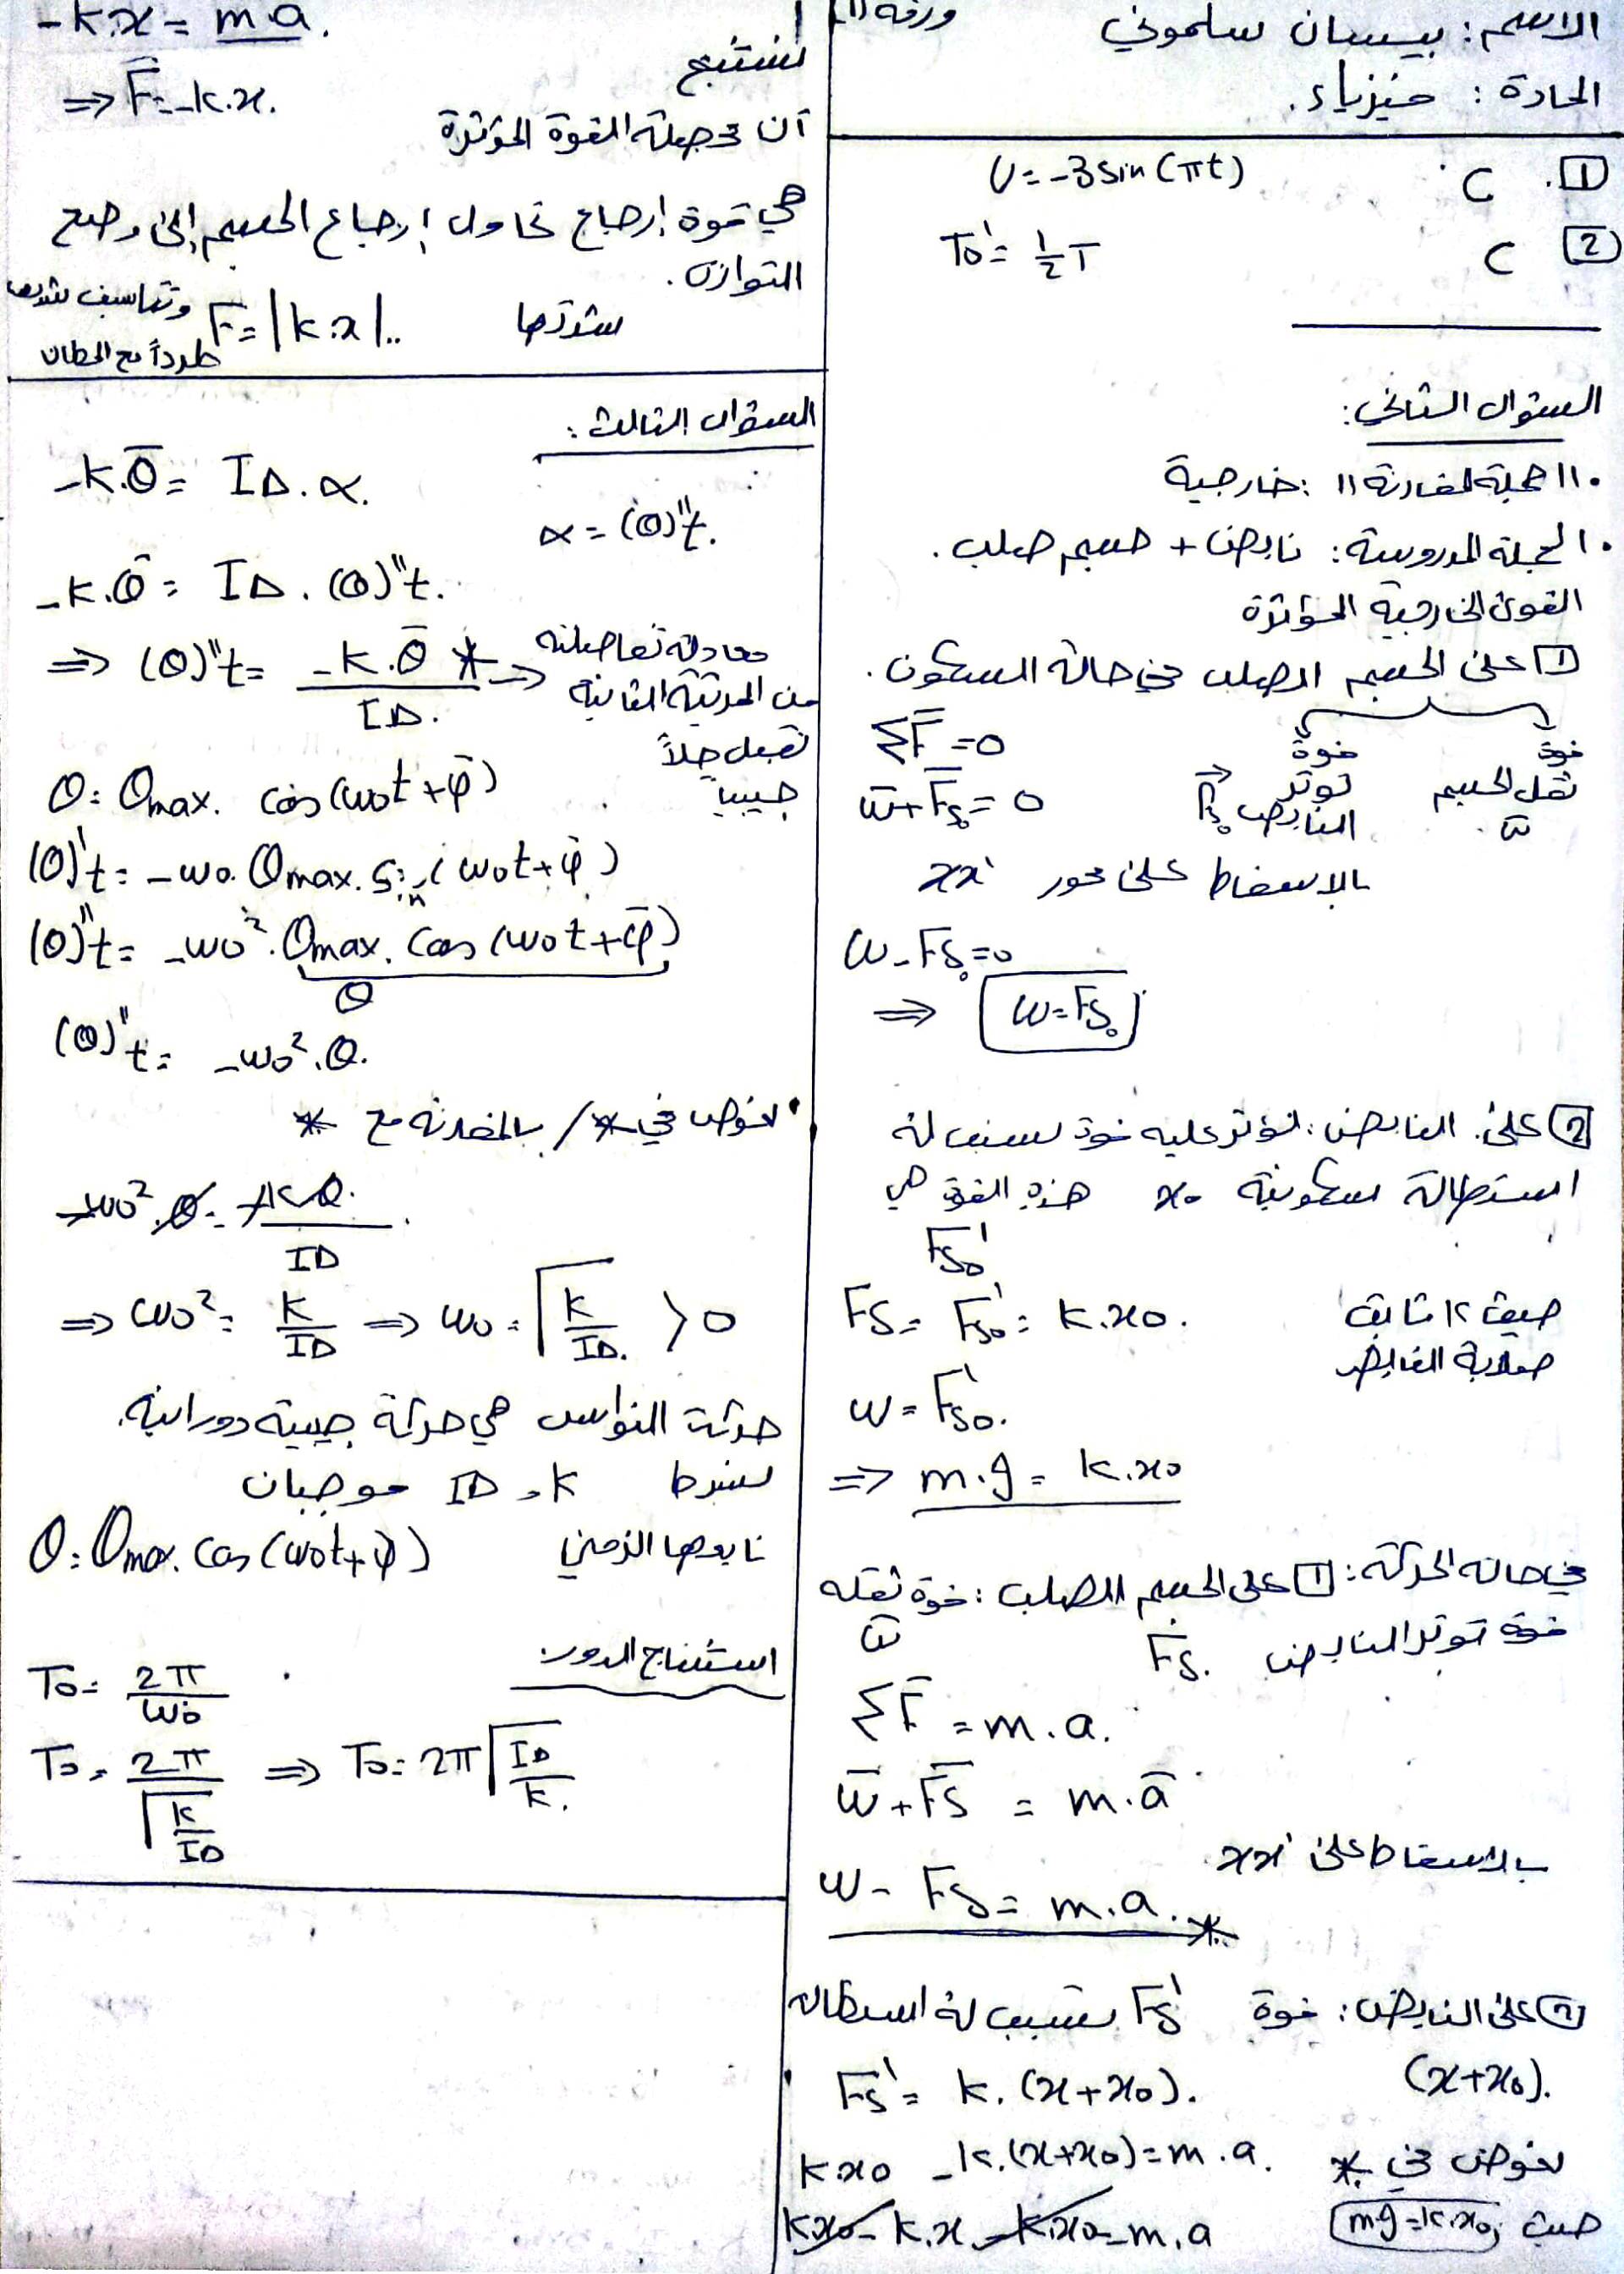 الاسم: بيسان سلموني ورقة (1)
المادة: فيزياء.
1. C v = -3 sin(πt)
2 C T0' = 1/2 T
السؤال الثاني:
• جملة المقارنة: خارجية
• الجملة المدروسة: نابض + جسم صلب.
القوى الخارجية المؤثرة
1 على الجسم الصلب في حالة السكون.
قوة ثقل الجسم w
قوة توتر النابض Fs0
ΣF = 0
w + Fs0 = 0
بالإسقاط على محور xx'
w - Fs0 = 0
⇒ w = Fs0
2 على النابض: تؤثر عليه قوة تسبب له
استطالة سكونية x0 هذه القوة هي
Fs0'
Fs = Fs0' = k.x0. حيث k ثابت
صلابة النابض
w = Fs0'.
⇒ m.g = k.x0
في حالة الحركة: 1 على الجسم الصلب: قوة ثقله
w قوة توتر النابض Fs.
ΣF = m.a.
w + Fs = m.a
بالإسقاط على xx'
w - Fs = m.a. *
2 على النابض: قوة Fs' تسبب له استطالة
(x+x0).
Fs' = k.(x+x0).
نعوض في * kx0 - k.(x+x0) = m.a.
حيث mg = k.x0
kx0 - k.x - k.x0 = m.a
-k.x = m.a.
⇒ F = -k.x.
نستنتج
أن محصلة القوة المؤثرة
هي قوة إرجاع تحاول إرجاع الجسم إلى وضع
التوازن.
شدتها F = |k.x|.. وتتناسب شدتها
طرداً مع المطال
السؤال الثالث:
-k.θ = IΔ.α.
α = (θ)''t.
-k.θ = IΔ.(θ)''t.
⇒ (θ)''t = -k.θ / IΔ. * ⇒ معادلة تفاضلية
من المرتبة الثانية
تقبل حلاً
جيبياً
θ = θmax. cos(ω0t + φ)
(θ)'t = -ω0.θmax. sin(ω0t + φ)
(θ)''t = -ω0².θmax. cos(ω0t + φ)
θ
(θ)''t = -ω0².θ.
• نعوض في * / بالمقارنة مع *
-ω0².θ = -kθ. / IΔ
⇒ ω0² = k/IΔ ⇒ ω0 = √(k/IΔ.) > 0
حركة النواس هي حركة جيبية دورانية.
بشرط IΔ، k موجبان
تابعها الزمني θ = θmax. cos(ω0t + φ)
استنتاج الدور:
T0 = 2π/ω0
T0 = 2π/√(k/IΔ) ⇒ T0 = 2π√(IΔ/k.)